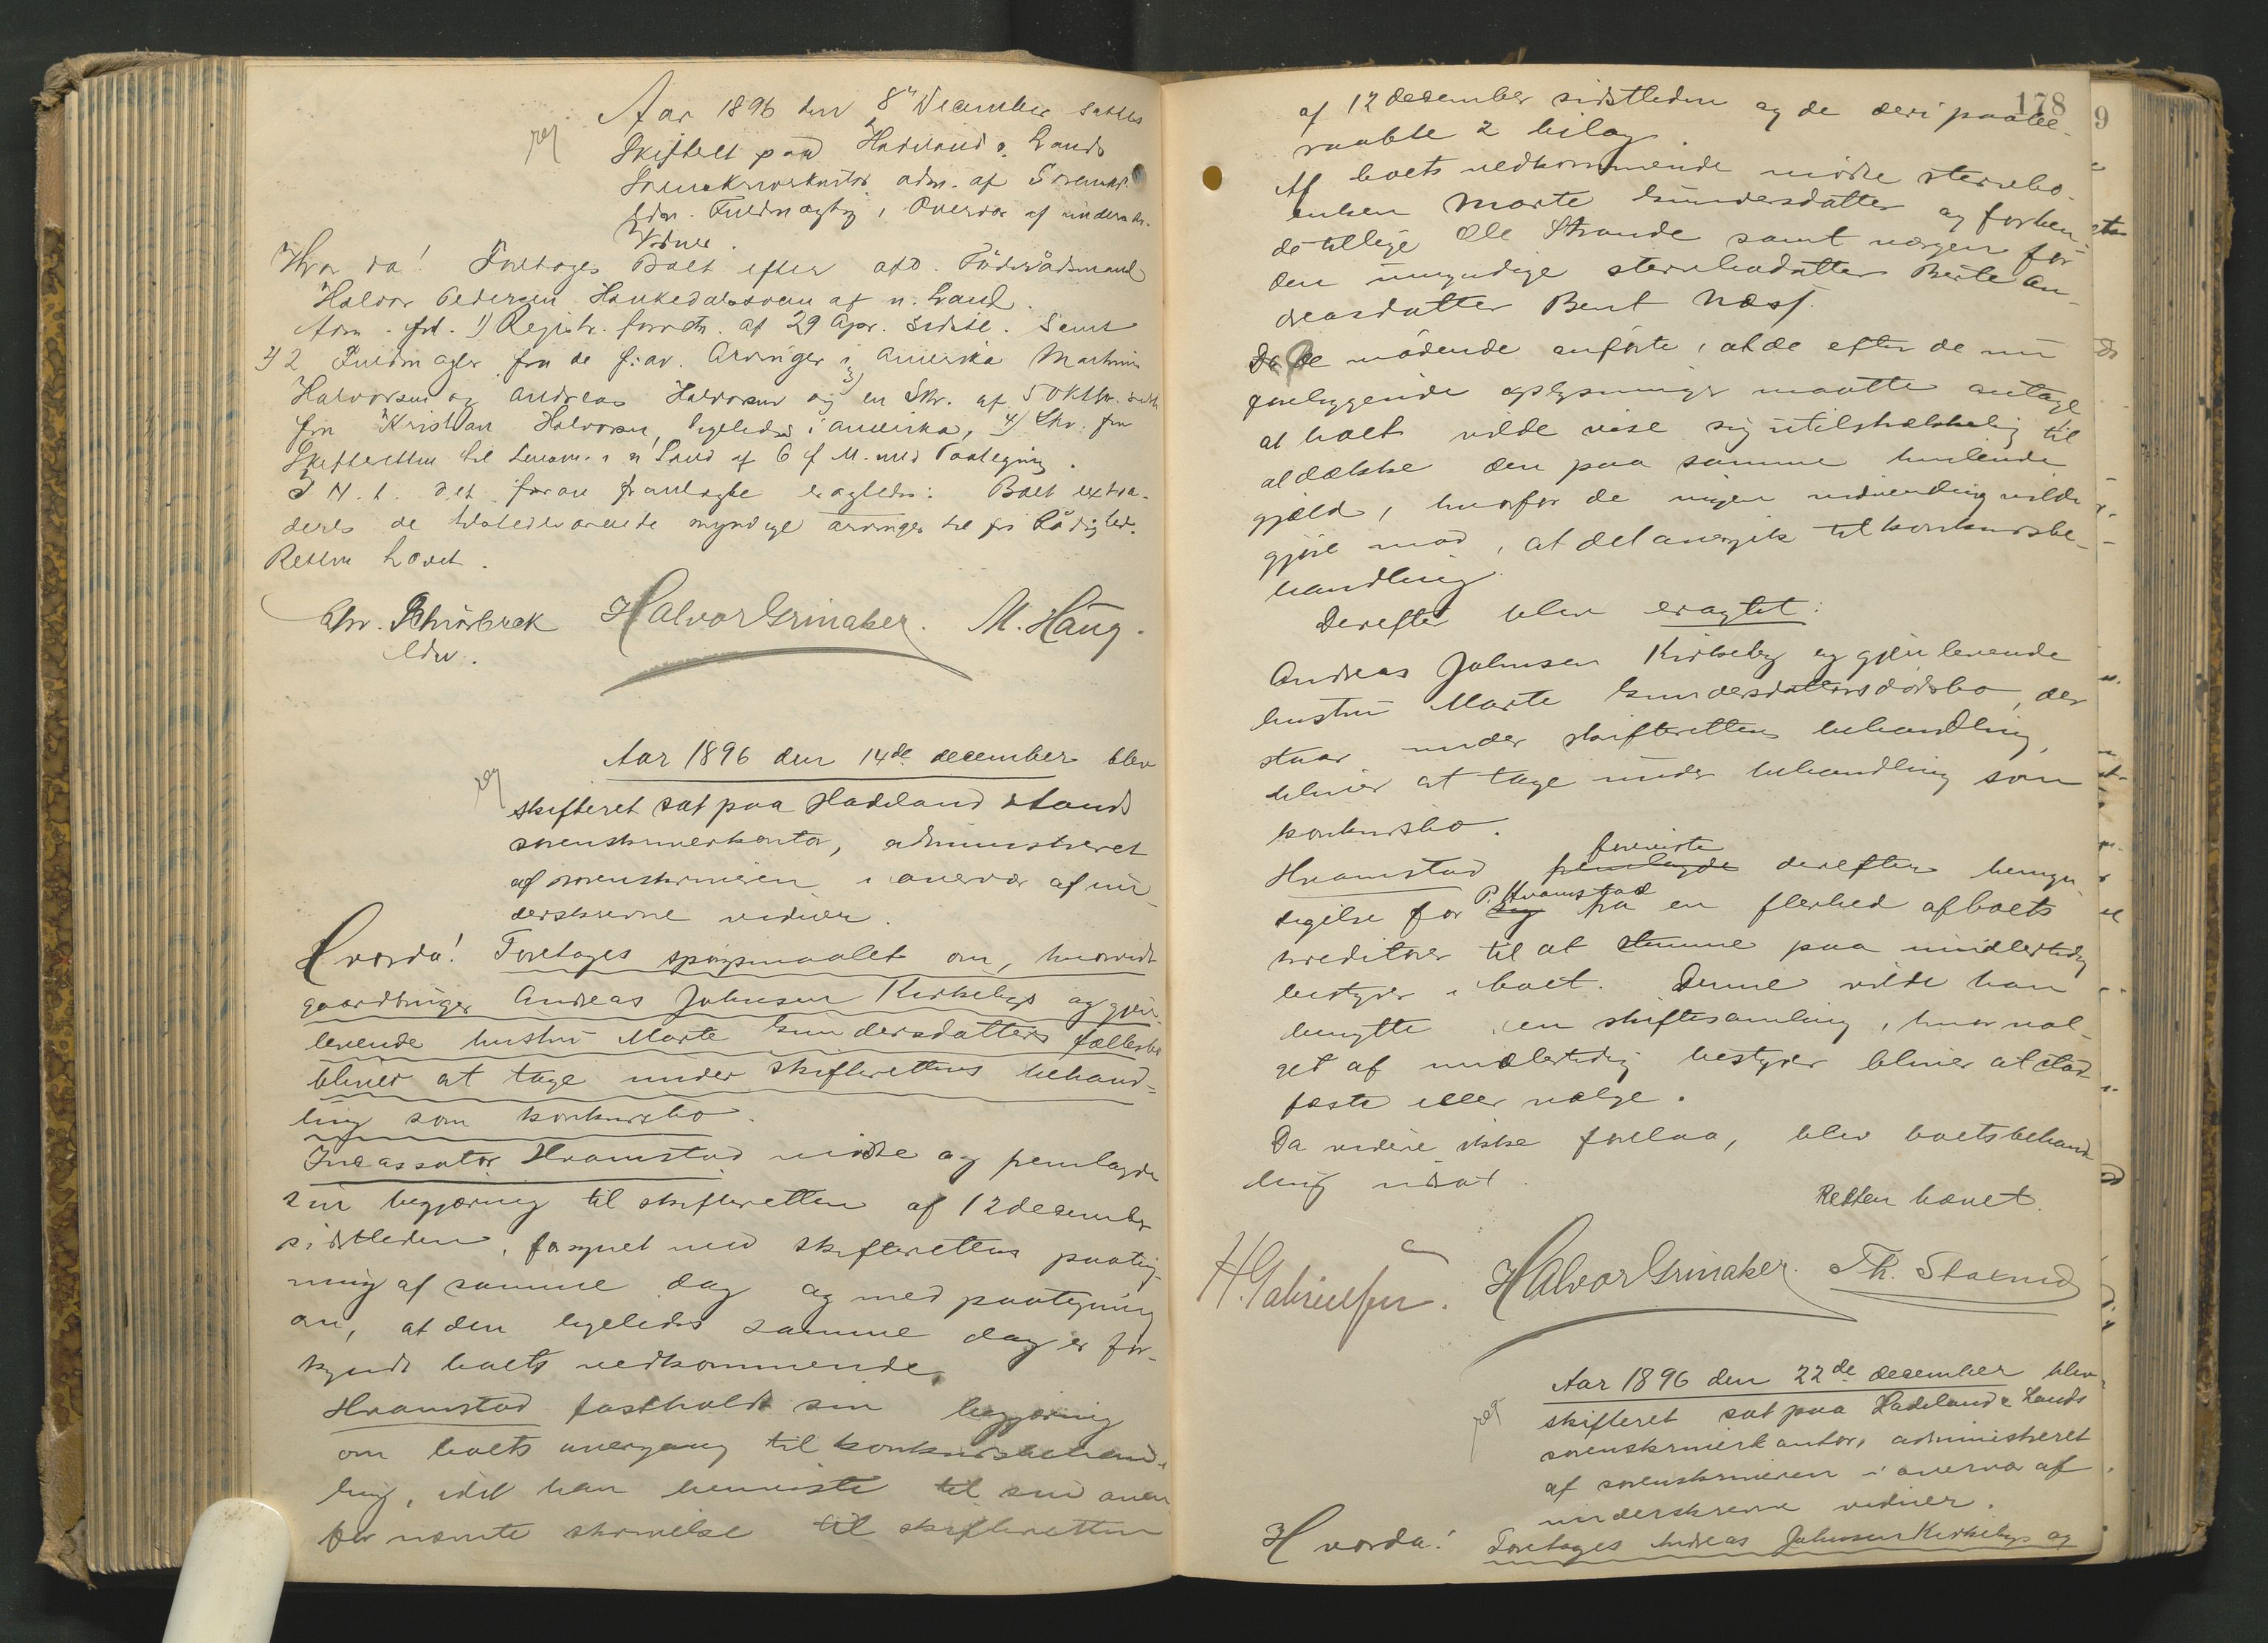 Aar 1896 den 8de December sattes
reg
Skifteret paa Hadeland & Lands
Sorenskriverkontor adm. af Sorenskr.
Edsv. Fuldmægtig i Overvær af underskr.
Vidner.
Hvor da! Foretages Boet efter afd. Föderaadsmand
Halvor Pedersen Haukedalsveen af n. Land.
Adm. frl. 1) Registr. forretn. af 29 Apr. sidstl. samt
2) 2 Fuldmagter fra de f:av. Arvinger i Amerika Martin
Halvorsen og Andreas Halvorsen og 3) en Skr. af 5 Oktbr. sidstl
fra Kristian Halvorsen, ligeledes i Amerika, 4) Skr. fra
Skifteretten til Lensm. i n Land af 6 f. M. med Paategning.
I H. t. det foran fremlagte eragtedes: Boet extra-
deres de tilstedeværende myndige arvinger til fri Raadighed.
Retten hævet.
Chr. Schiørbeck Halvor Grinaker. M. Haug.
Edsv.
Aar 1896 den 14de december blev
reg
skifteret sat paa Hadeland & Lands
sorenskriverkontor, administreret
af sorenskriveren i overvær af un-
derskrevne vidner.
Hvorda! Foretages spørgsmaalet om, hvorvidt
gaardbruger Andreas Johnsen Kirkebys og gjen-
levende hustru Marte Gundersdatters fællesbo
bliver at tage under skifterettens behand-
ling som konkursbo.
Incassator Hvamstad mødte og fremlagde
sin begjæring til skifteretten af 12 desember
sidstleden, forsynet med skifterettens paateg-
ning af samme dag og med paategning
om, at den ligeledes samme dag er for-
kyndt boets vedkommende.
Hvamstad fastholdt sin begjæring
om boets overgang til konkursbehand-
ling, idet han henviste til sin oven
for nævnte skrivelse til skifteretten
178
9
af 12 desember sidstleden og de deri paabe-
raabte 2 bilag.
Af boets vedkommende mødte stervbo-
enken Marte Gundersdatter og forhen-
de tillige Ole Strande samt værgen for
den umyndige stervbodatter Berte An-
dreasdatter Bent Næss.
Da de mødende anførte, at de efter de nu
foreliggende oplysninger maatte antage
at boet vilde vise sig utilstrækkelig til
at dække den paa samme hvilende
gjæld, hvorfor de ingen indvending vilde
gjøre mod, at det overgik til konkursbe-
handling.
Derefter blev eragtet:
Andreas Johnsen Kirkeby og gjenlevende
hustru Marte Gundersdatters dødsbo, der
staar under skifterettens behandling,
bliver at tage under behandling som
konkursbo.
foreviste
Hvamstad fremlagde derefter bemyn-
P. Hvamstad
digelse for sig fra en flerhed af boets
kreditorer til at stemme paa midlertidig
bestyrer i boet. Denne vilde han
benytte i en skiftesamling, hvor val-
get af midlertidig bestyrer bliver at stad
fæste eller vælge.
Da videre ikke forelaa, blev boets behand
ling udsat.
Retten hævet.
H. Gabrielsen. Halvor Grinaker. Th. Staxrud
Aar 1896 den 22de december blev
reg
skifteret sat paa Hadeland & Lands
sorenskriverkontor, administreret
af sorenskriveren i overvær af
underskrevne vidner.
Hvorda! Foretages Andreas Johnsen Kirkebys og